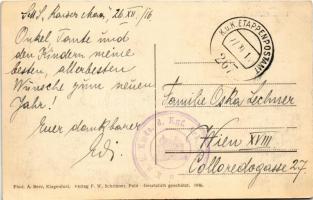 S.M.S. "Kaiser Max", 26 XII /16
Onkel, Tante und
den Kindern meine
besten, allerbesten
Wünsche zum neuen
Jahr!
Euer dankbarer
Edi.
K.u.K. ETAPPENPOSTAMT
267
Familie Oskar Lechner
Wien XVIII
Colloredogasse 27
Phot. A. Beer, Klagenfurt. Verlag F. W. Schrinner, Pola Gesetzlich geschützt.